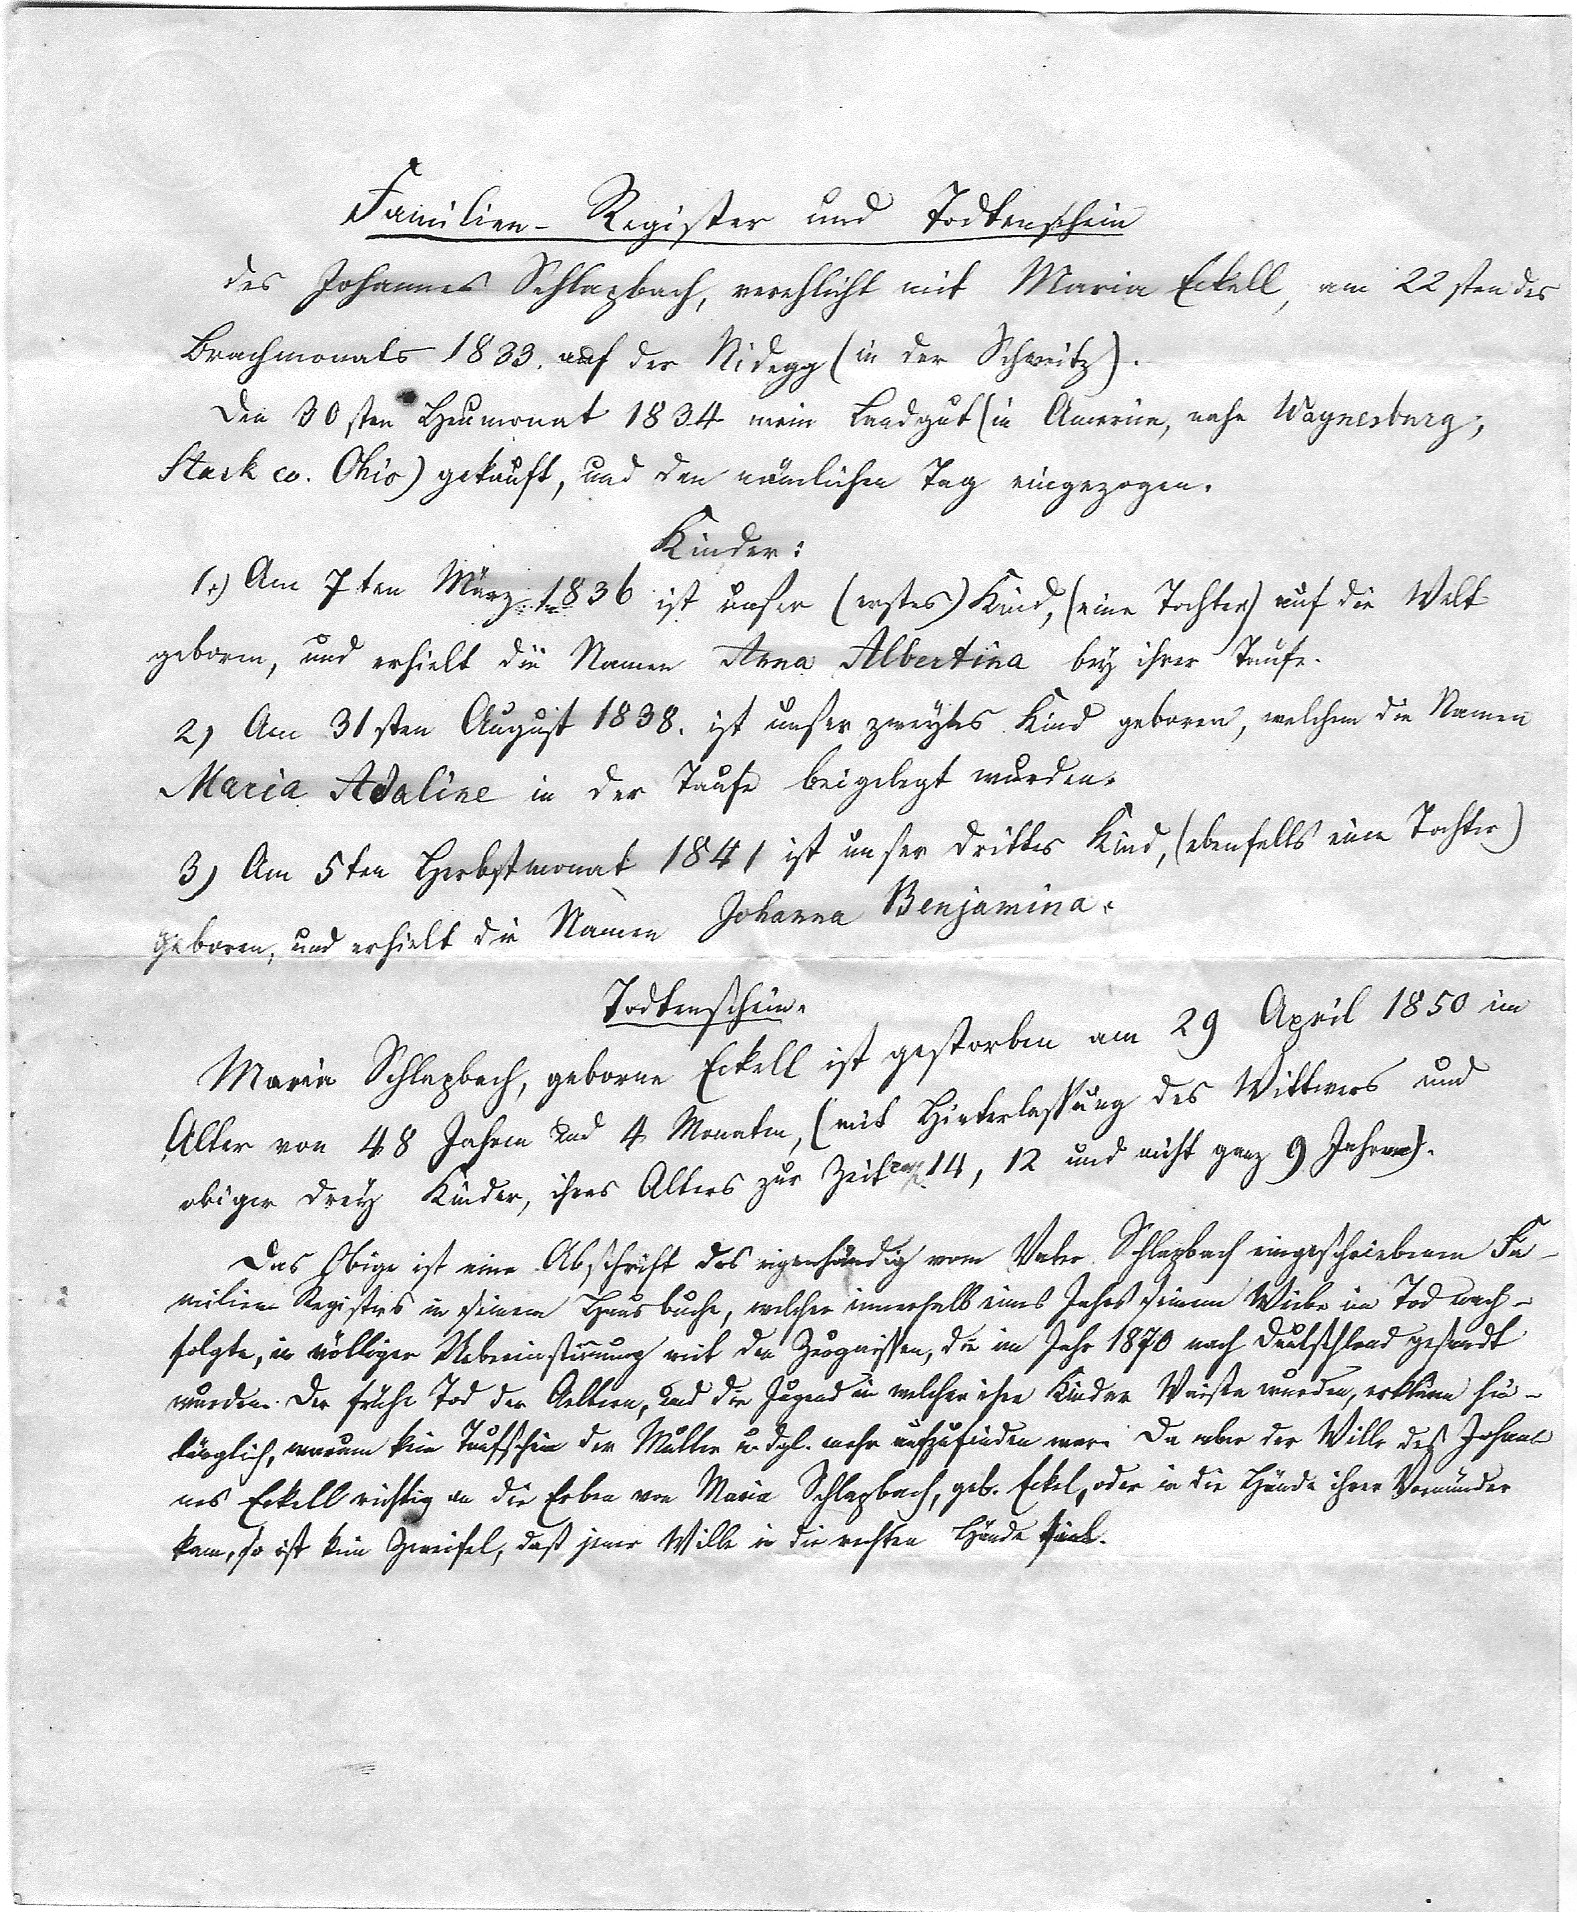 Familien-Register und Todtenschein
des Johannes Schlapbach, verehlicht mit Maria Eckell, am 22sten des
Brachmonats 1833. auf der Nidegg (in der Schweitz).
Den 30sten Heumonat 1834 mein Landgut (in America, nahe Waynesburg,
Stark co. Ohio) gekauft, und den nämlichen Tag eingezogen.
Kinder:
1.) Am 7ten März 1836 ist unser (erstes) Kind, (eine Tochter) auf die Welt
geboren, und erhielt die Namen Anna Albertina bey ihrer Taufe.
2) Am 31sten August 1838. ist unser zweytes Kind geboren, welchem die Namen
Maria Adaline in der Taufe beigelegt wurden.
3) Am 5ten Herbstmonat 1841 ist unser drittes Kind, (ebenfalls eine Tochter)
geboren, und erhielt die Namen Johanna Benjamina.
Todtenschein.
Maria Schlapbach, geborne Eckell ist gestorben am 29 April 1850 im
Alter von 48 Jahren und 4 Monaten, (mit Hinterlassung des Wittwers und
obiger drey Kinder, ihres Alters zur Zeit 14, 12 und nicht ganz 9 Jahren).
Das Obige ist eine Abschrift des eigenhändig vom Vater Schlapbach eingeschriebenen Fa-
milien Registers in seinem Hausbuche, welcher innerhalb eines Jahres seinem Weibe im Tod nach-
folgte, in völliger Uebereinstimmung mit den Zeugnissen, die im Jahr 1870 nach Deutschland gesandt
wurden. Der frühe Tod der Aeltern, und die Jugend in welcher ihre Kinder Waise wurden, erklären hin-
länglich, warum kein Taufschein der Mutter u. dgl. mehr aufzufinden war. Da aber der Wille des Johan-
nes Eckell richtig an die Erben von Maria Schlapbach, geb. Eckel, oder in die Hände ihrer Vormünder
kam, so ist kein Zweifel, daß jener Wille in die rechten Hände fiel.